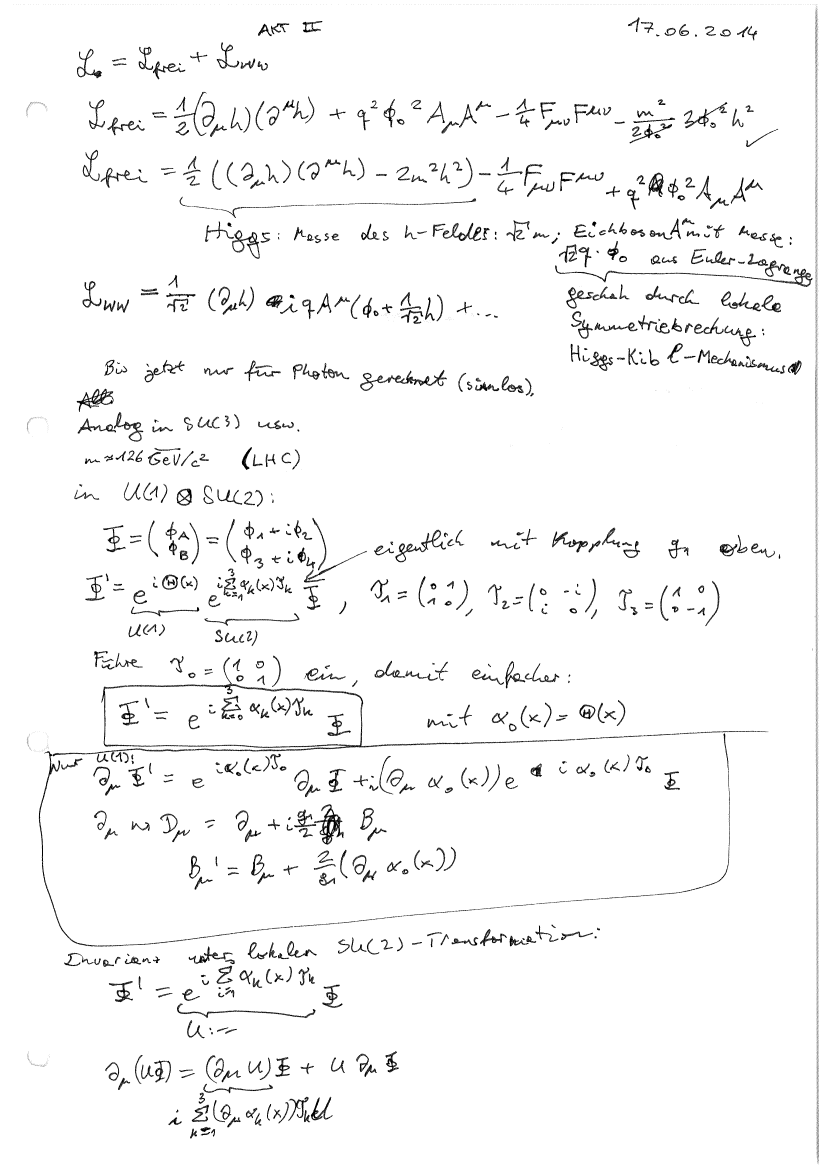 AKT II
17.06.2014
ℒ = ℒfrei + ℒww
ℒfrei = 1/2 (∂μh)(∂^μh) + q²ϕ₀² AμA^μ − 1/4 FμνF^μν − m²/2ϕ₀² 2ϕ₀² h² ✓
ℒfrei = 1/2 ((∂μh)(∂^μh) − 2m²h²) − 1/4 FμνF^μν + q²ϕ₀² AμA^μ
Higgs: Masse des h-Feldes: √2 m; Eichboson A^μ mit Masse:
√2 q · ϕ₀ aus Euler-Lagrange
geschah durch lokale
Symmetriebrechung:
Higgs-Kibble-Mechanismus
ℒww = 1/√2 (∂μh) i q A^μ (ϕ₀ + 1/√2 h) + ...
Bis jetzt nur für Photon gerechnet (sinnlos),
Analog in SU(3) usw.
m ≈ 126 GeV/c² (LHC)
in U(1) ⊗ SU(2):
Φ = (ϕA ϕB) = (ϕ₁ + iϕ₂ ϕ₃ + iϕ₄)
eigentlich mit Kopplung g₁ oben.
Φ' = e^{iΘ(x)} e^{i Σ_{k=1}^{3} αk(x) τk} Φ, τ₁ = (0 1 1 0), τ₂ = (0 −i i 0), τ₃ = (1 0 0 −1)
U(1) SU(2)
Führe τ₀ = (1 0 0 1) ein, damit einfacher:
Φ' = e^{i Σ_{k=0}^{3} αk(x) τk} Φ mit α₀(x) = Θ(x)
Nur U(1):
∂μ Φ' = e^{iα₀(x)τ₀} ∂μ Φ + i(∂μ α₀(x)) e^{iα₀(x)τ₀} Φ
∂μ ⇝ Dμ = ∂μ + i g₁/2 Bμ
Bμ' = Bμ + 2/g₁ (∂μ α₀(x))
Invariant unter lokalen SU(2)-Transformation:
Φ' = e^{i Σ_{i=1}^{3} αk(x) τk} Φ
U :=
∂μ(UΦ) = (∂μ U)Φ + U ∂μ Φ
i Σ_{k=1}^{3} (∂μ αk(x)) τk U